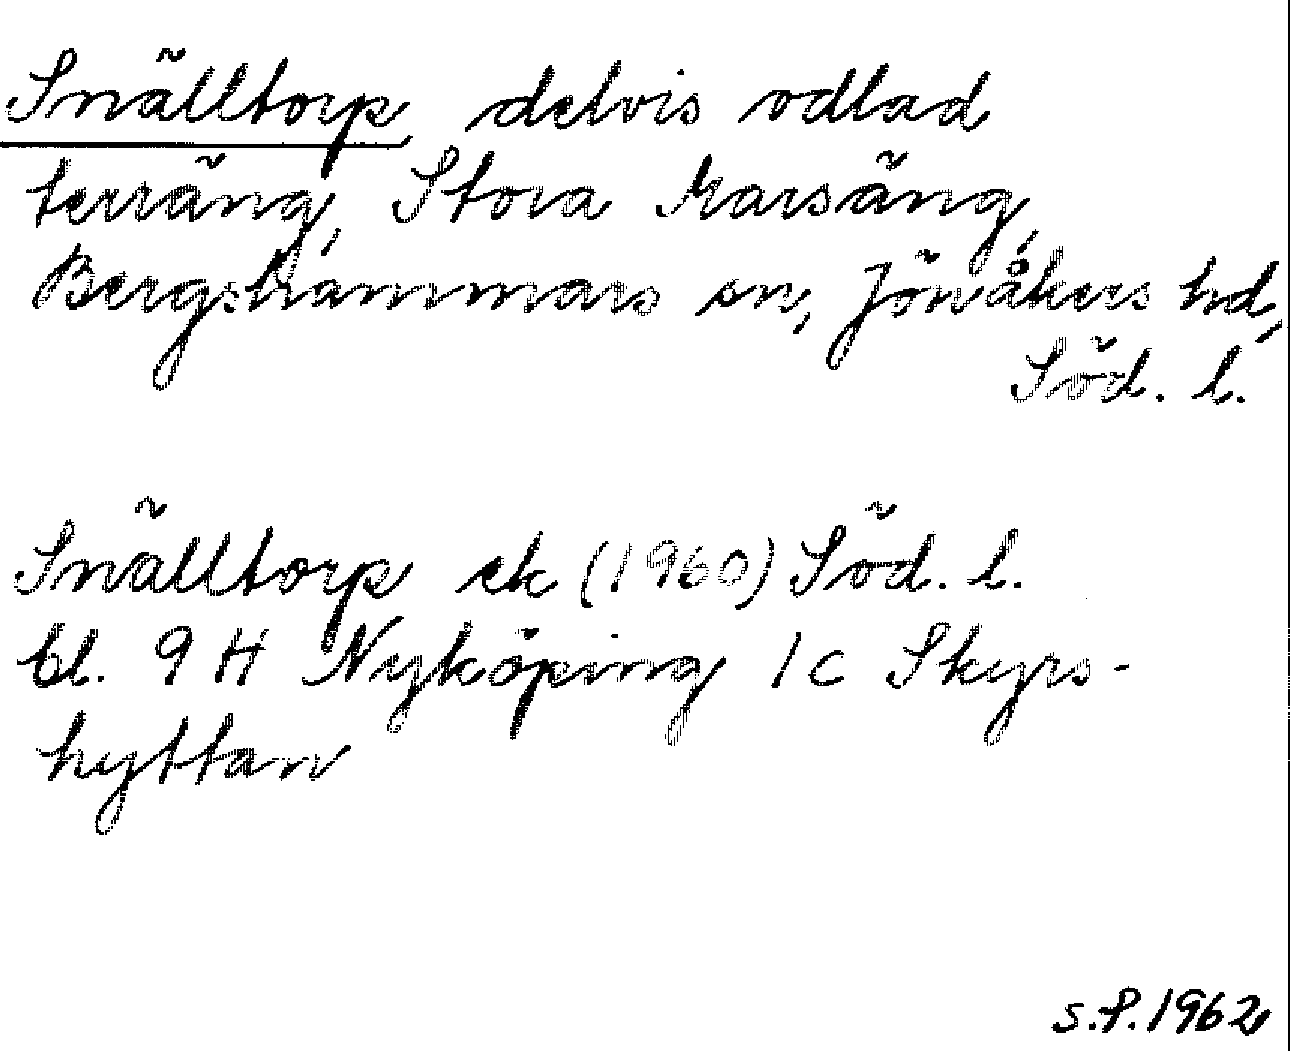 Snälltorp, delvis odlad
terräng, Stora Karsäng,
Bergshammars sn, Jönåkers hd,
Söd. l.
Snälltorp ek (1960) Söd. l.
bl. 9 H Nyköping 1 c Skyrs-
hyttan
S.P. 1962